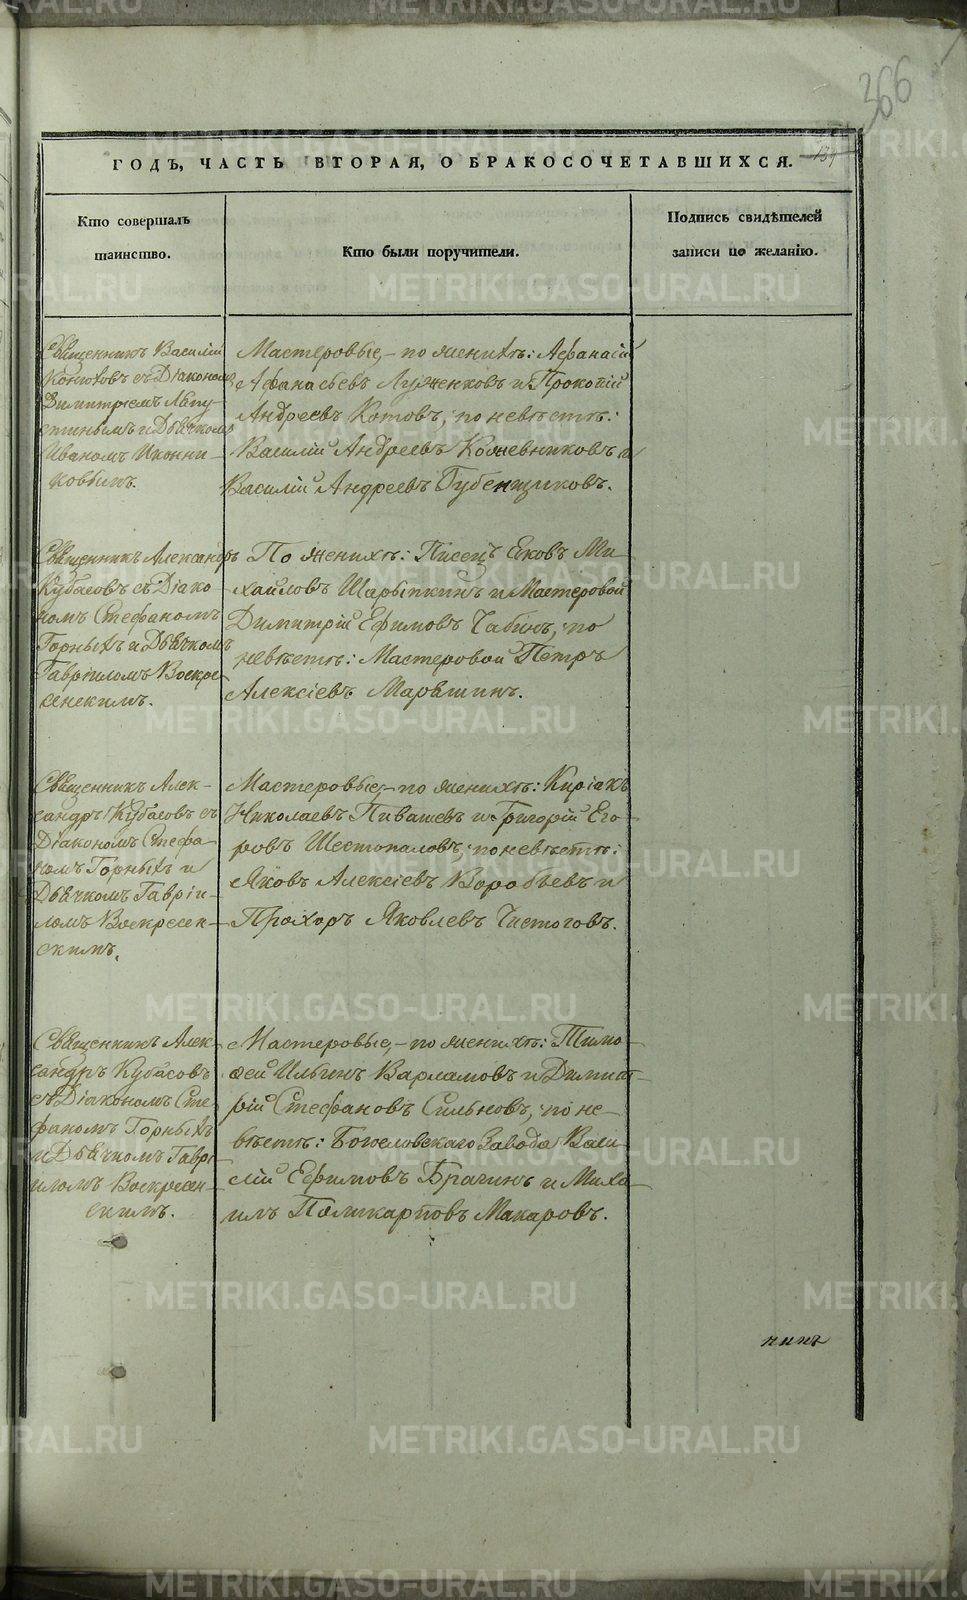 366
134
ГОДЪ, ЧАСТЬ ВТОРАЯ, О БРАКОСОЧЕТАВШИХСЯ.
Кто совершалъ
таинство.
Кто были поручители.
Подпись свидѣтелей
записи по желанію.
Священникъ Василій
съ Діакономъ
Димитріемъ
и Дьячкомъ
Иваномъ Иконни-
ковымъ.
Мастеровые, - по женихѣ: Аѳанасій
Аѳанасьевъ и Прокопій
Андреевъ Котовъ; по невѣстѣ:
Василій Андреевъ Кожевниковъ и
Василій Андреевъ Губенщиковъ.
Священникъ Александръ
Кубасовъ съ Діако
номъ Стефаномъ
Горныхъ и Дьячкомъ
Гавріиломъ Воскре
сенскимъ.
По женихѣ: Писецъ Яковъ Ми
хайловъ Шарыпкинъ и Мастеровой
Димитрій Ефимовъ Чабинъ; по
невѣстѣ: Мастеровой Петръ
Алексіевъ Марьшинъ.
Священникъ Алек-
сандръ Кубасовъ съ
Діакономъ Стефа
номъ Горныхъ и
Дьячкомъ Гавріи-
ломъ Воскресен-
скимъ.
Мастеровые, - по женихѣ: Киріакъ
Николаевъ Пивашевъ и Григорій Его-
ровъ Шестопаловъ; по невѣстѣ:
Яковъ Алексіевъ Воробьевъ и
Прохоръ Яковлевъ Чистоговъ.
Священникъ Алек-
сандръ Кубасовъ
съ Діакономъ Сте-
фаномъ Горныхъ
и Дьячкомъ Гаврі-
иломъ Воскресен-
скимъ.
Мастеровые, - по женихѣ: Тимо-
ѳей Ильинъ Варламовъ и Димит-
рій Стефановъ Сильновъ; по не-
вѣстѣ: Богословскаго Завода Васи-
лій Ефимовъ Брагинъ и Миха-
илъ Поликарповъ Макаровъ.
METRIKI.GASO-URAL.RU